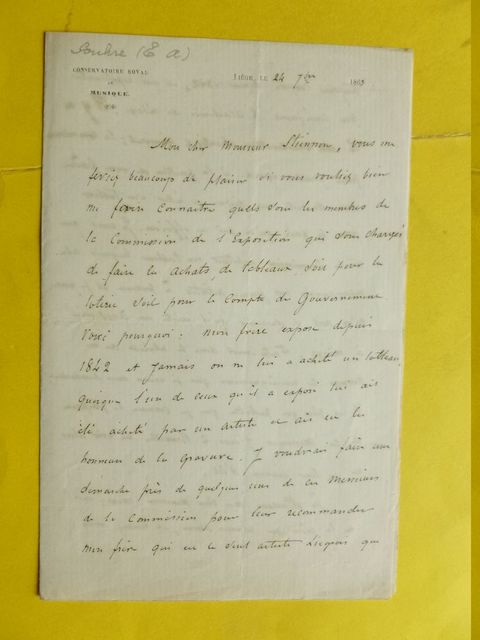 Soubre (E A)
CONSERVATOIRE ROYAL
DE
MUSIQUE
LIÉGE, LE 24 7bre 1863
Mon cher Monsieur Stiennon, vous me
feriez beaucoup de plaisir si vous vouliez bien
me faire connaitre quels sont les membres de
la Commission de l'Exposition qui sont chargés
de faire les achats, de tableaux soit pour la
loterie soit pour le Compte du Gouvernement
Voici pourquoi : mon frère expose depuis
1842 et jamais on ne lui a acheté un tableau
quoique l'un de ceux qu'il a exposé lui ait
été acheté par un artiste et ait eu les
honneurs de la gravure. Je voudrais faire une
démarche près de quelques uns de ces Messieurs
de la Commission pour leur recommander
mon frère qui est le seul artiste Liégeois que